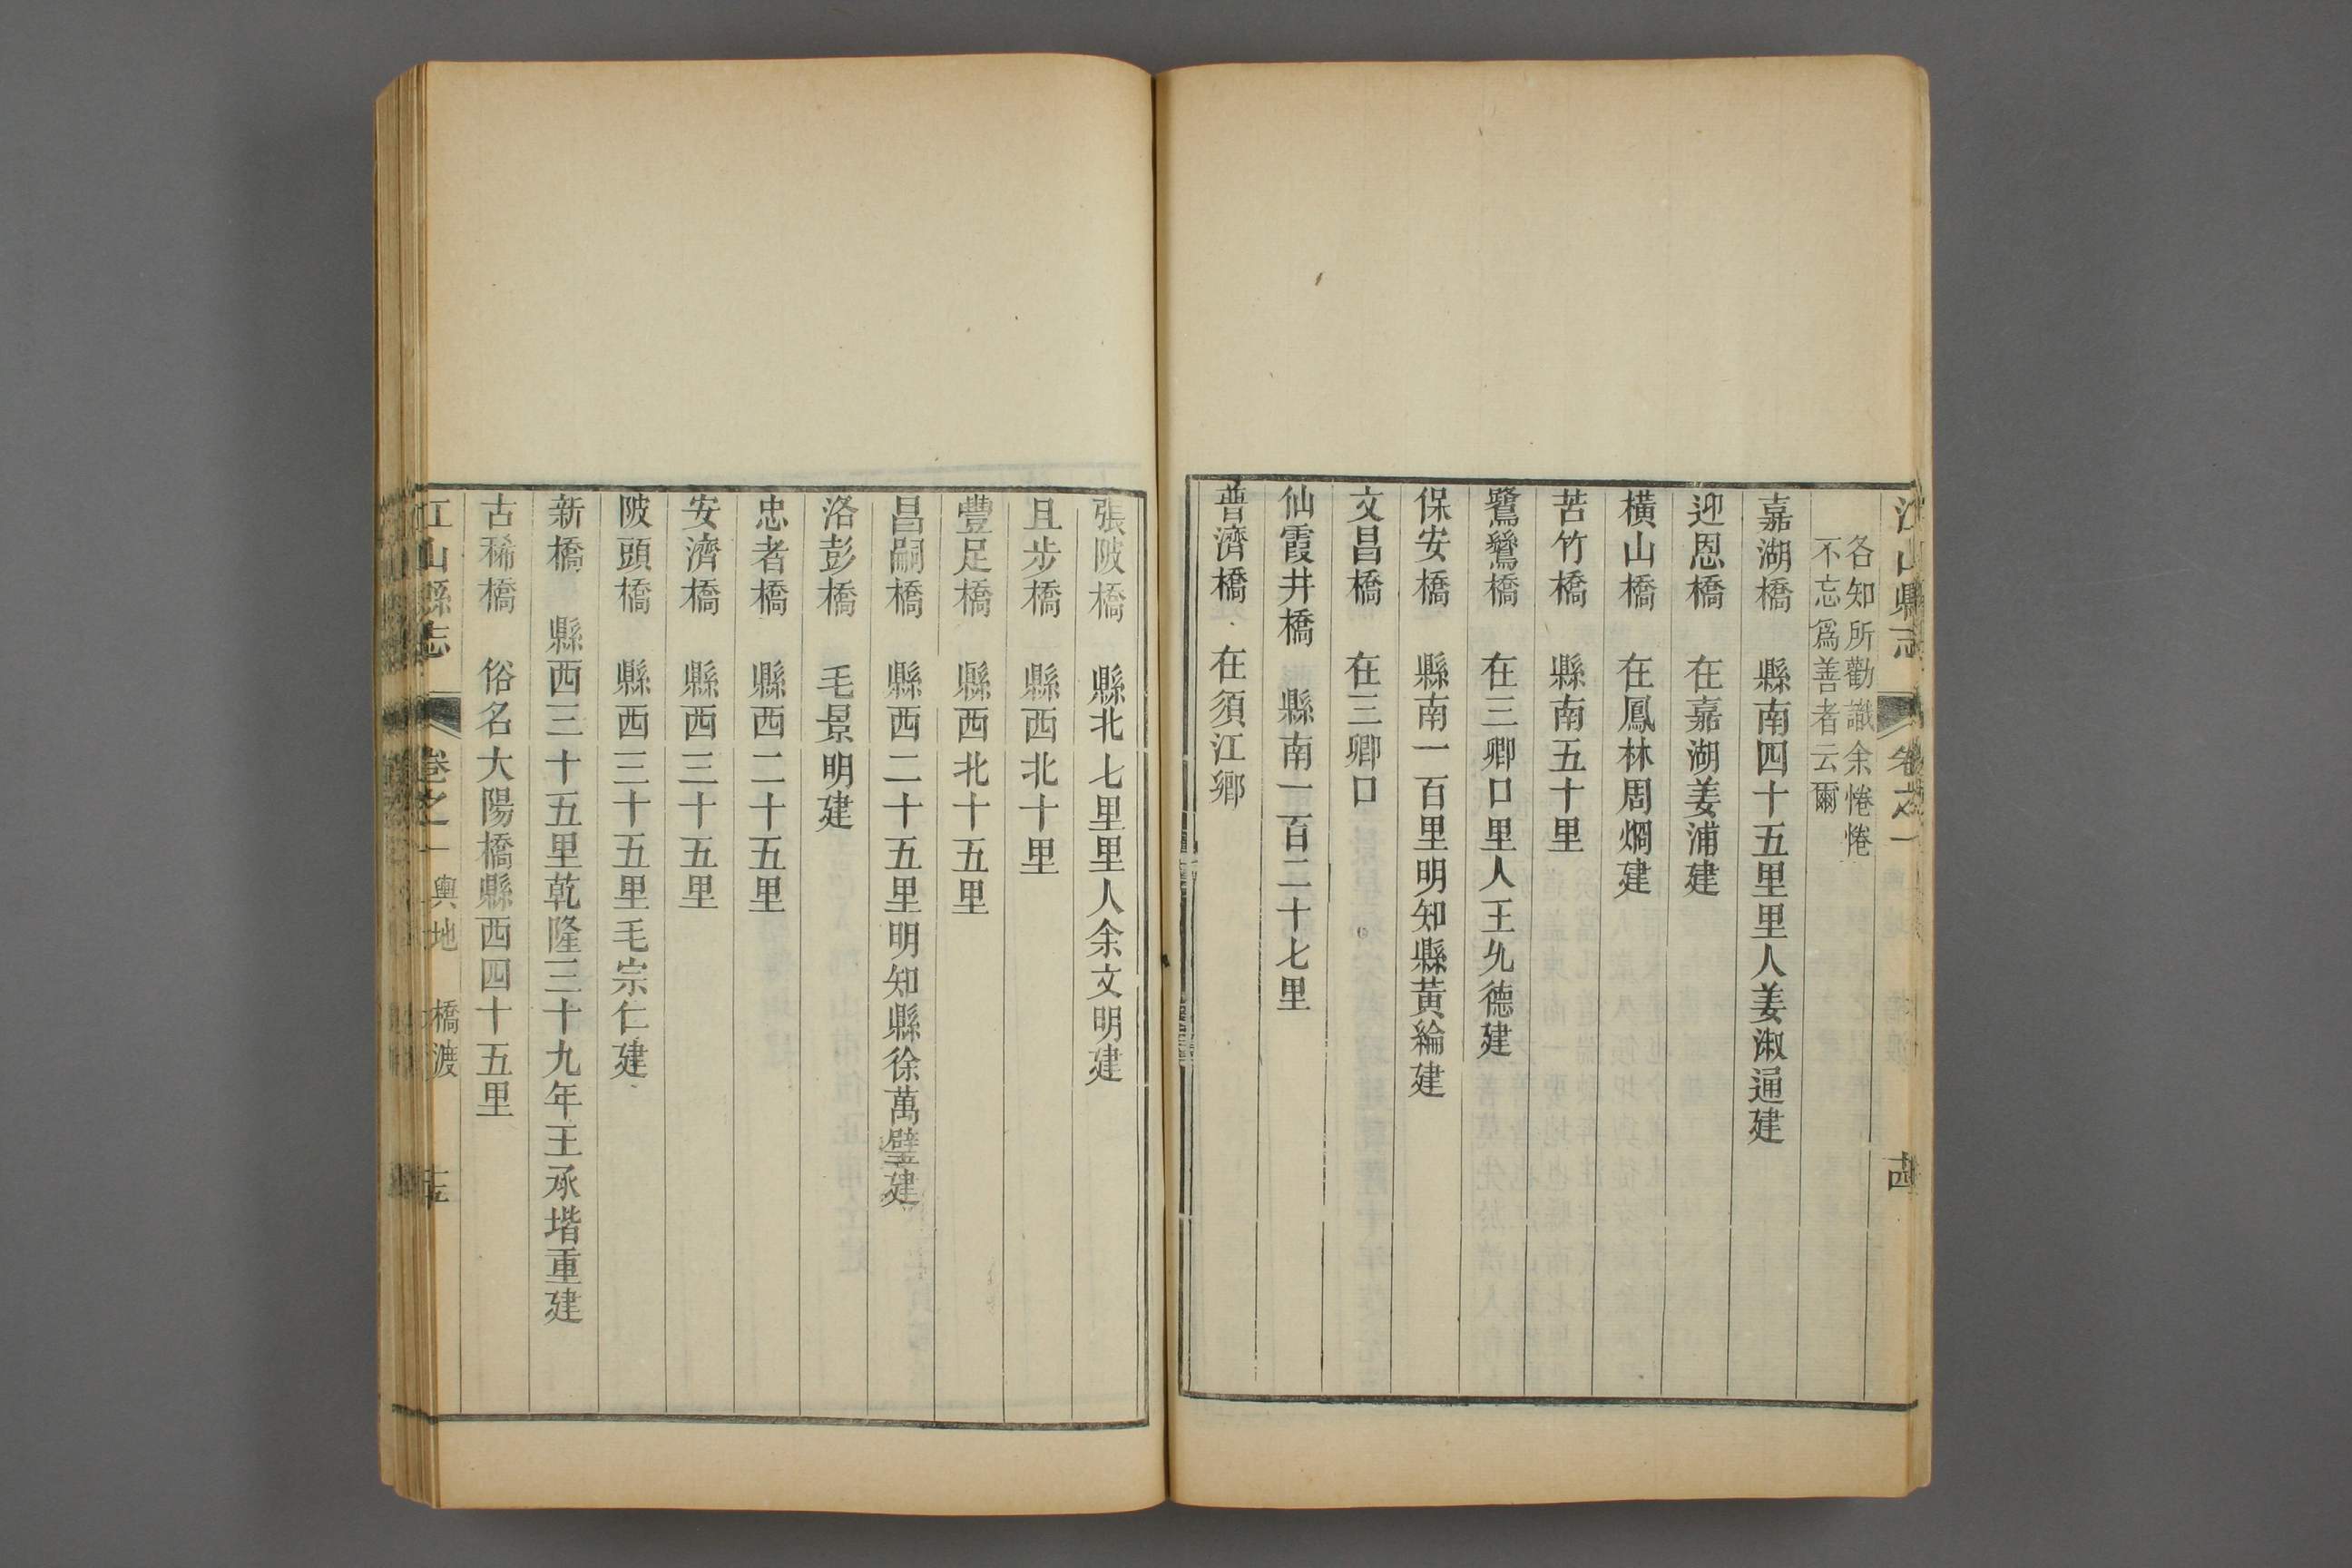 江山縣志 卷之一 十四
各知所勸識余惓惓
不忘爲善者云爾
嘉湖橋 縣南四十五里里人姜淑通建
迎恩橋 在嘉湖姜浦建
橫山橋 在鳳林周烱建
苦竹橋 縣南五十里
鷺鷥橋 在三卿口里人王允德建
保安橋 縣南一百里明知縣黃綸建
文昌橋 在三卿口
仙霞井橋 縣南一百二十七里
普濟橋 在須江鄉
張陂橋 縣北七里里人余文明建
且步橋 縣西北十里
豐足橋 縣西北十五里
昌嗣橋 縣西二十五里明知縣徐萬璧建
洛彭橋 毛景明建
忠者橋 縣西二十五里
安濟橋 縣西三十五里
陂頭橋 縣西三十五里毛宗仁建
新橋 縣西三十五里乾隆三十九年王承堦重建
古稀橋 俗名大陽橋縣西四十五里
江山縣志 卷之一 輿地 橋渡 十五